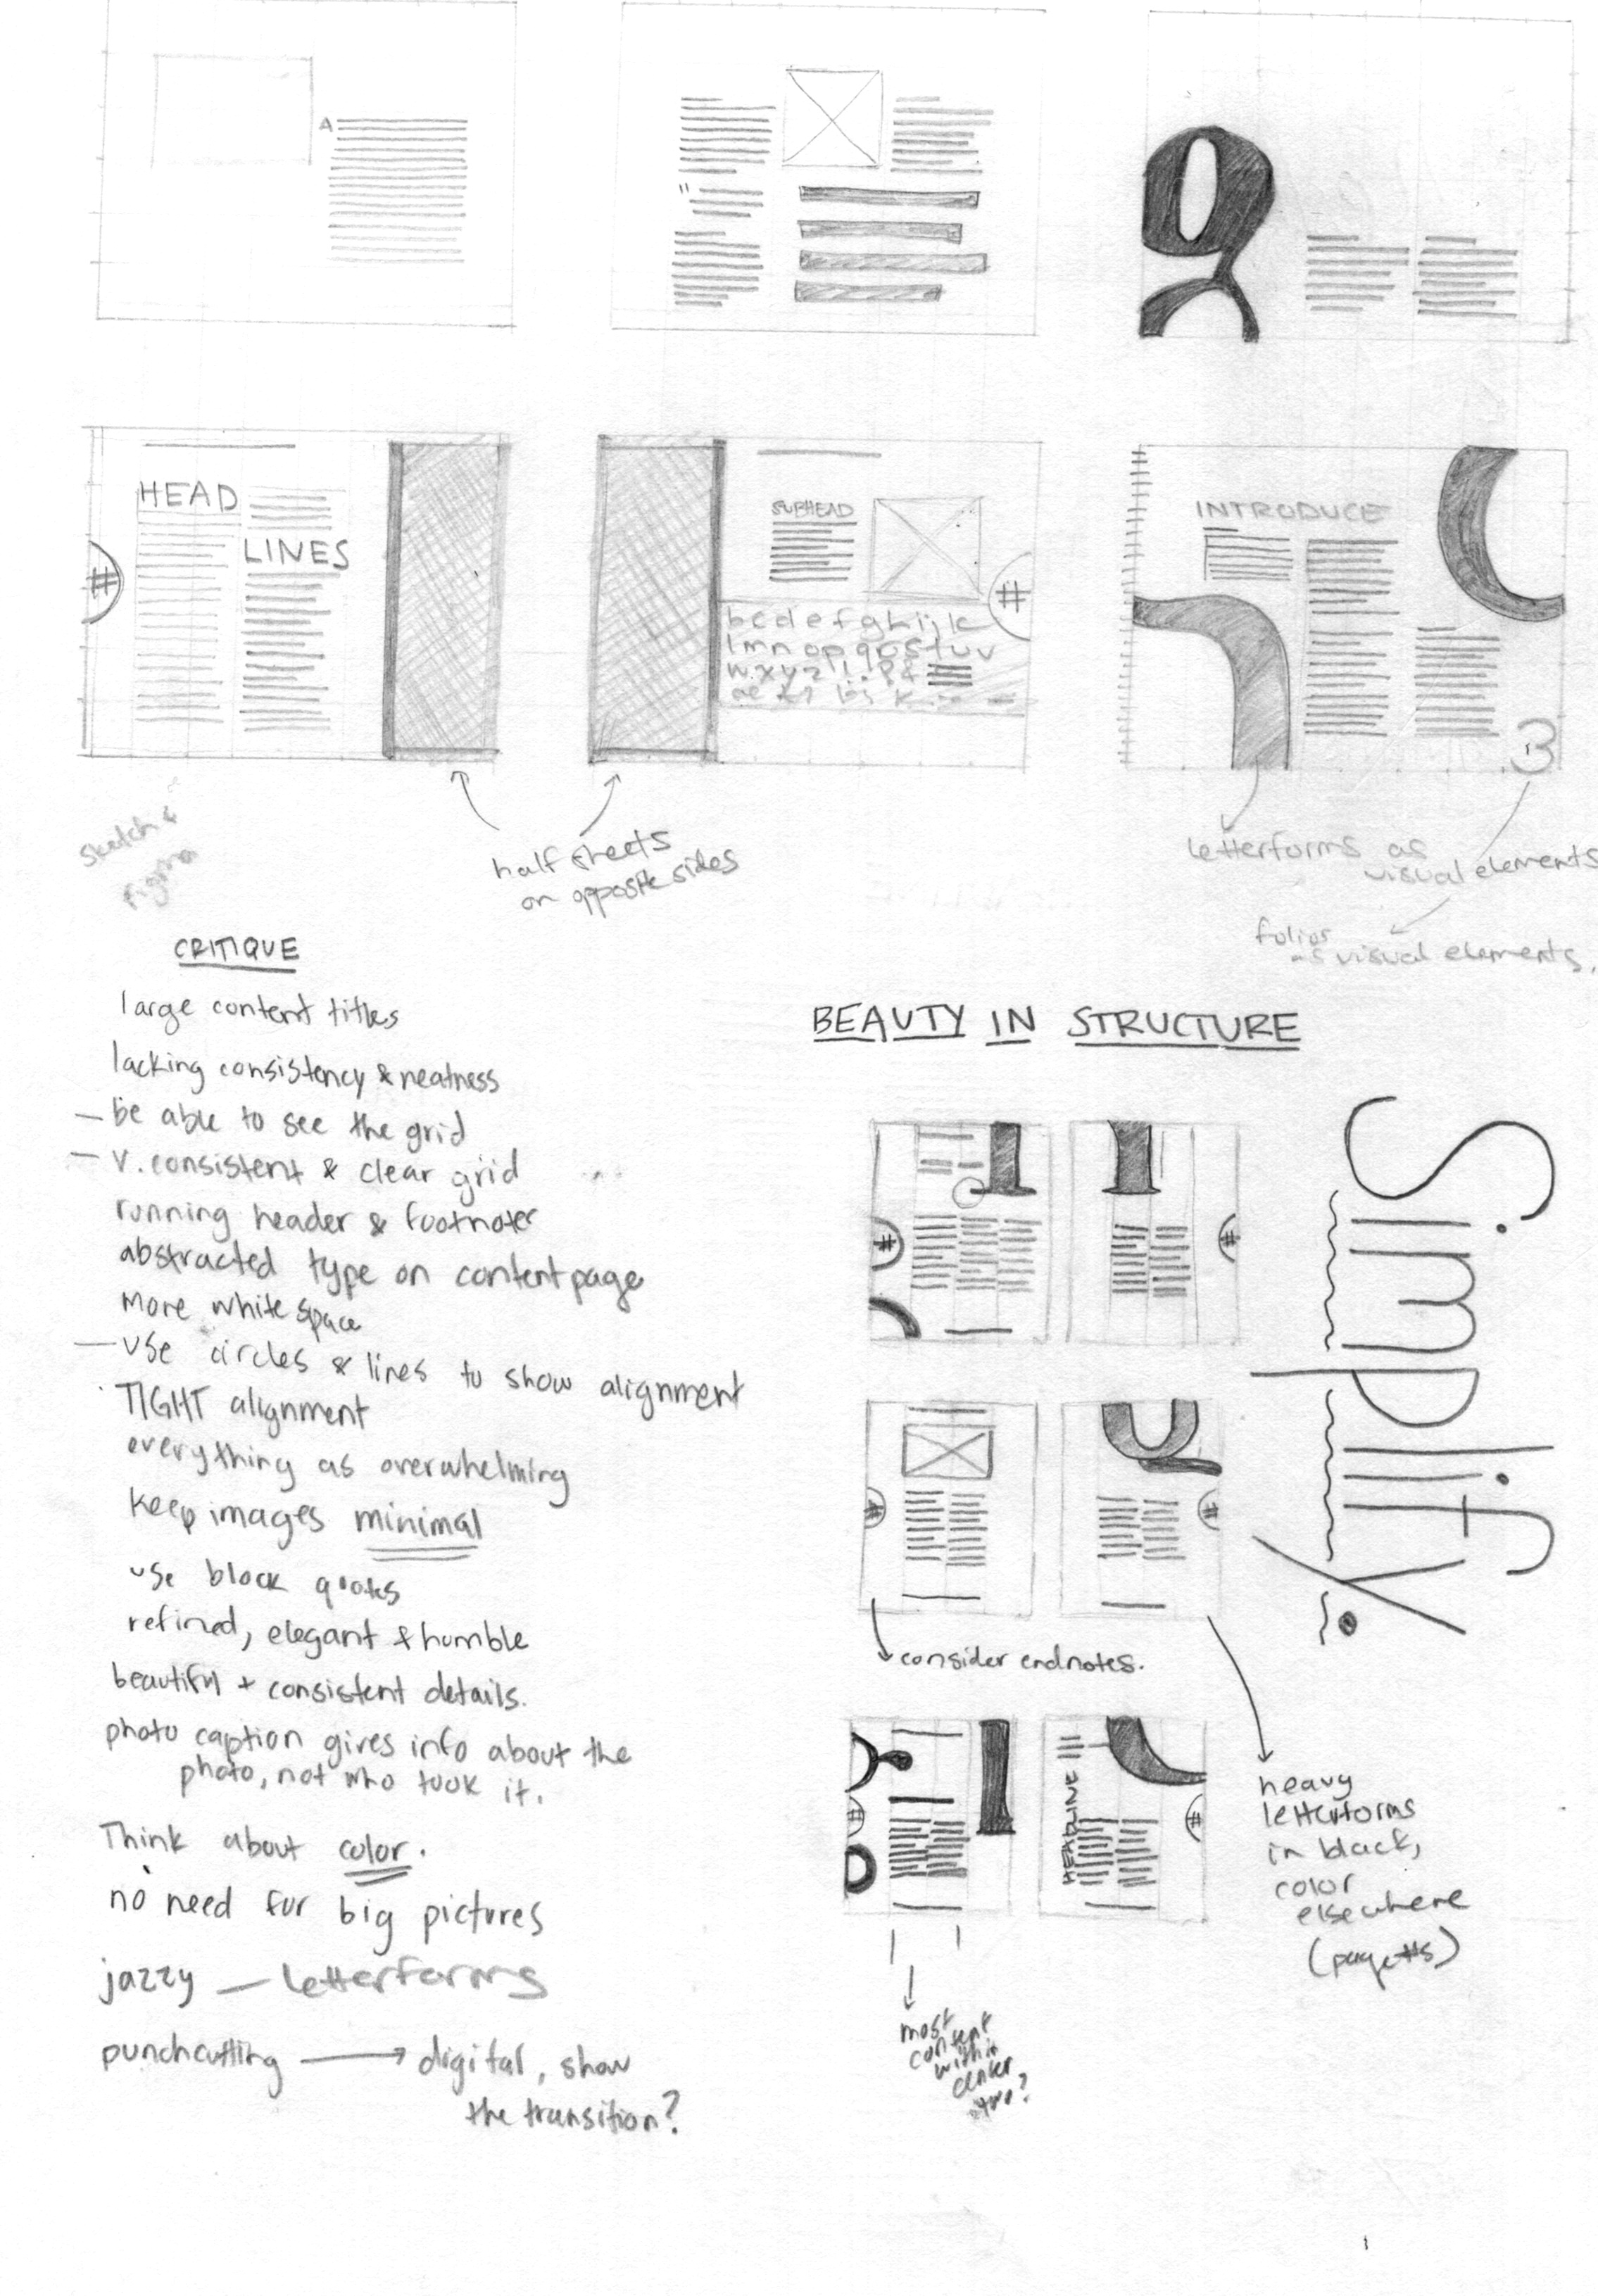 A
"
HEAD
LINES
#
SUBHEAD
#
bcdefghijk
lmnopqrstuv
wxyz!
INTRODUCE
3
sketch &
figma
half sheets
on opposite sides
letterforms as
visual elements
folios
as visual elements.
CRITIQUE
large content titles
lacking consistency & neatness
— be able to see the grid
— v. consistent & clear grid
running header & footnotes
abstracted type on content page
more white space
— use circles & lines to show alignment
TIGHT alignment
everything as overwhelming
keep images minimal
use block quotes
refined, elegant & humble
beautiful + consistent details.
photo caption gives info about the
photo, not who took it.
Think about color.
no need for big pictures
jazzy — letterforms
punchcutting → digital, show
the transition?
BEAUTY IN STRUCTURE
#
#
#
#
→ consider endnotes.
#
HEADLINE
#
most
content
within
center
two?
Simplify.
heavy
letterforms
in black,
color
elsewhere
(page #s)